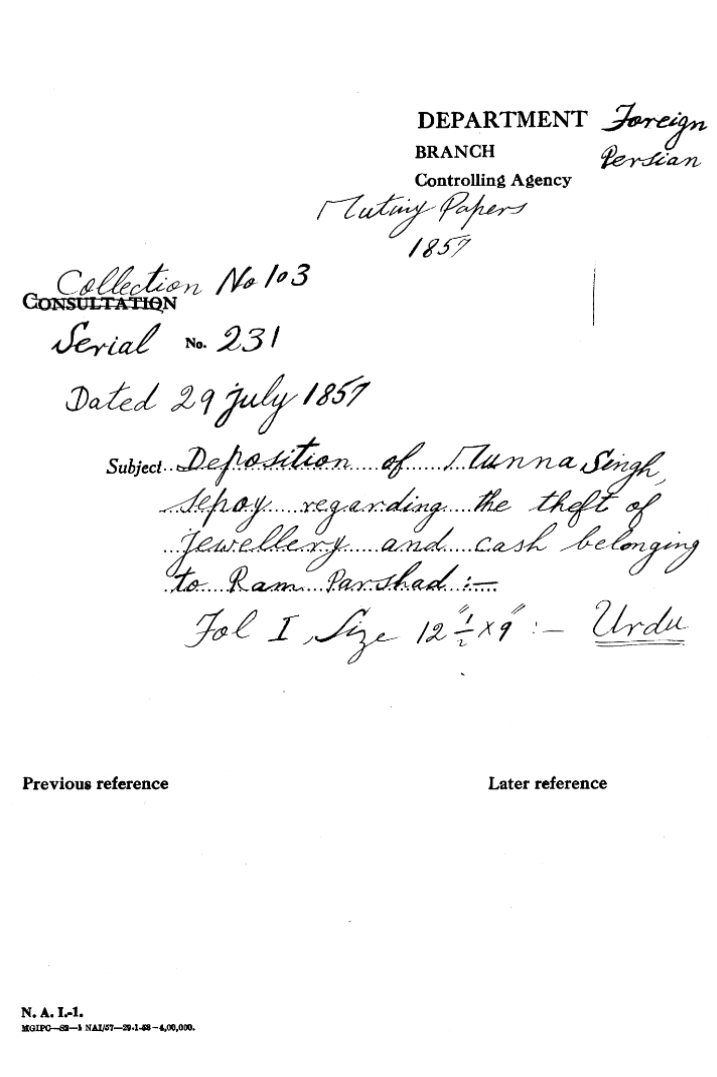 DEPARTMENT Foreign
BRANCH Persian
Controlling Agency
Mutiny Papers
1857
Collection No 103
CONSULTATION
Serial No. 231
Dated 29 july 1857
Subject.. Deposition of Munna Singh,
sepoy regarding the theft of
jewellery and cash belonging
to Ram Parshad :—
Fol I, Size 12"½ x 9" :— Urdu
Previous reference Later reference
N. A. I.-1.
MGIPC—S2—1 NAI/57—29-1-58—4,00,000.